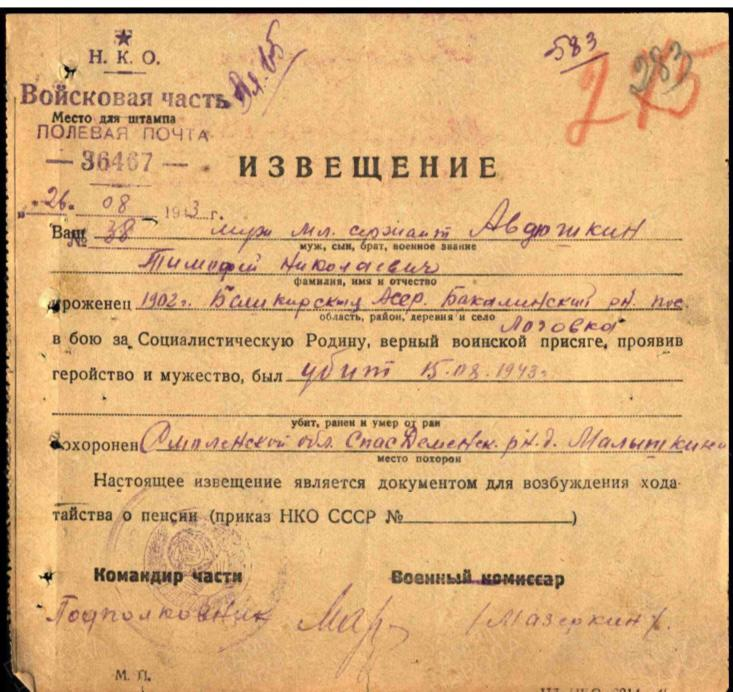 583
283
275
Н. К. О.
Войсковая часть
Место для штампа
ПОЛЕВАЯ ПОЧТА
— 36467 —
ИЗВЕЩЕНИЕ
„26„ 08 1943 г.
№ 38
Ваш муж мл. сержант Авдюшкин
муж, сын, брат, военное звание
Тимофей Николаевич
фамилия, имя и отчество
уроженец 1902г. Башкирския Асср. Бакалинский рн. пос.
область, район, деревня и село
Лозовка
в бою за Социалистическую Родину, верный воинской присяге, проявив
геройство и мужество, был убит 15.08.1943г
убит, ранен и умер от ран
Похоронен Смоленской обл. Спас Деменск. рн. д. Малышкино
место похорон
Настоящее извещение является документом для возбуждения хода-
тайства о пенсии (приказ НКО СССР № )
Командир части Военный комиссар
Подполковник /Мазеркин/.
М. П.